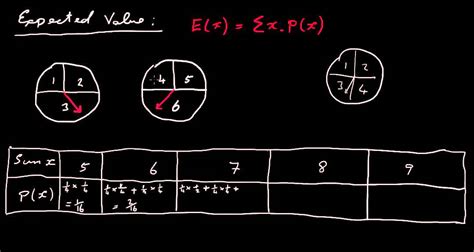 Expected Value: E(x) = Σx.P(x)
1 2 4 5 1 2
3 6 3 4
Sum x 5 6 7 8 9
P(x) 1/4 × 1/4 1/4 × 1/4 + 1/4 × 1/4 1/4 × 1/4 + 1/4 × 1/4 +
= 1/16 = /16